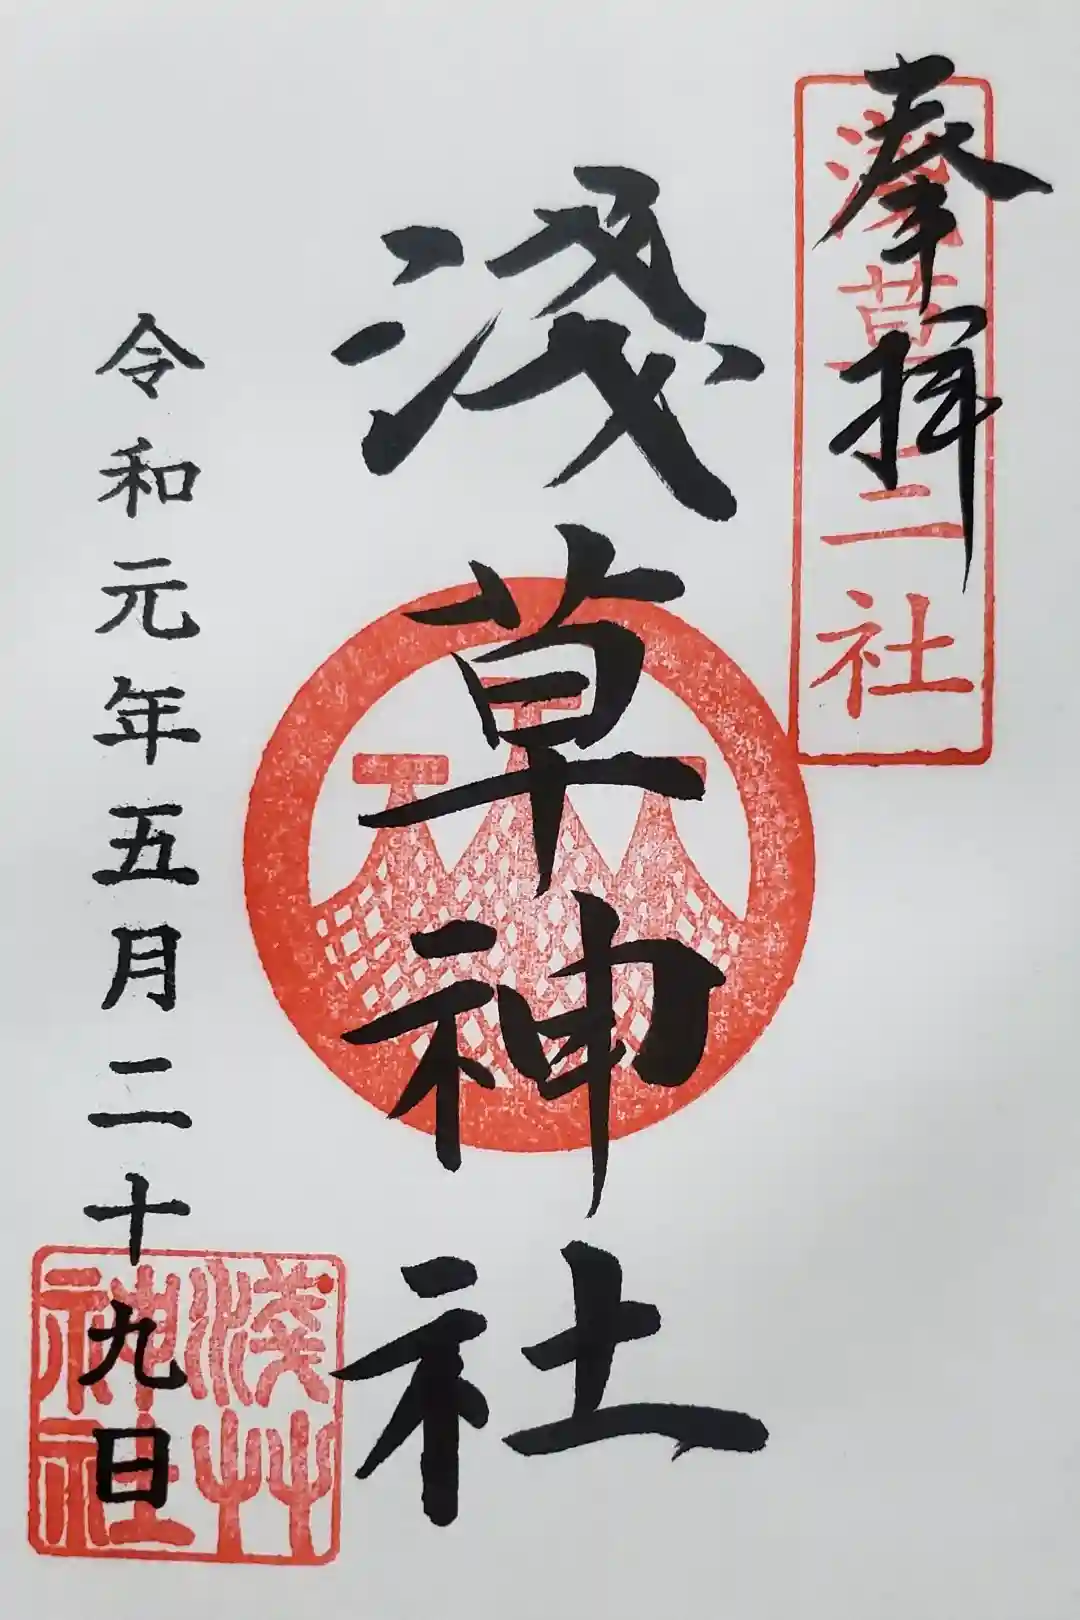 奉拝
淺草三社
淺草神社
令和元年五月二十九日
淺草神社